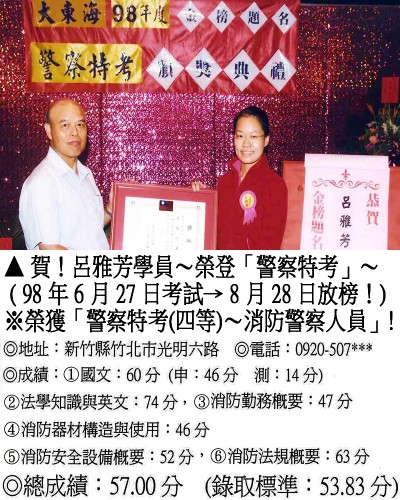 大東海 98年度 金榜題名
警察特考 頒獎典禮
恭賀
呂雅芳
金榜題名
▲賀！呂雅芳學員～榮登「警察特考」～
( 98 年 6 月 27 日考試→ 8 月 28 日放榜！)
※榮獲「警察特考(四等)～消防警察人員」!
◎地址：新竹縣竹北市光明六路 ◎電話：0920-507***
◎成績：①國文：60 分 (申：46 分 測：14 分)
②法學知識與英文：74 分，③消防勤務概要：47 分
④消防器材構造與使用：46 分
⑤消防安全設備概要：52 分，⑥消防法規概要：63 分
◎總成績：57.00 分 (錄取標準：53.83 分)